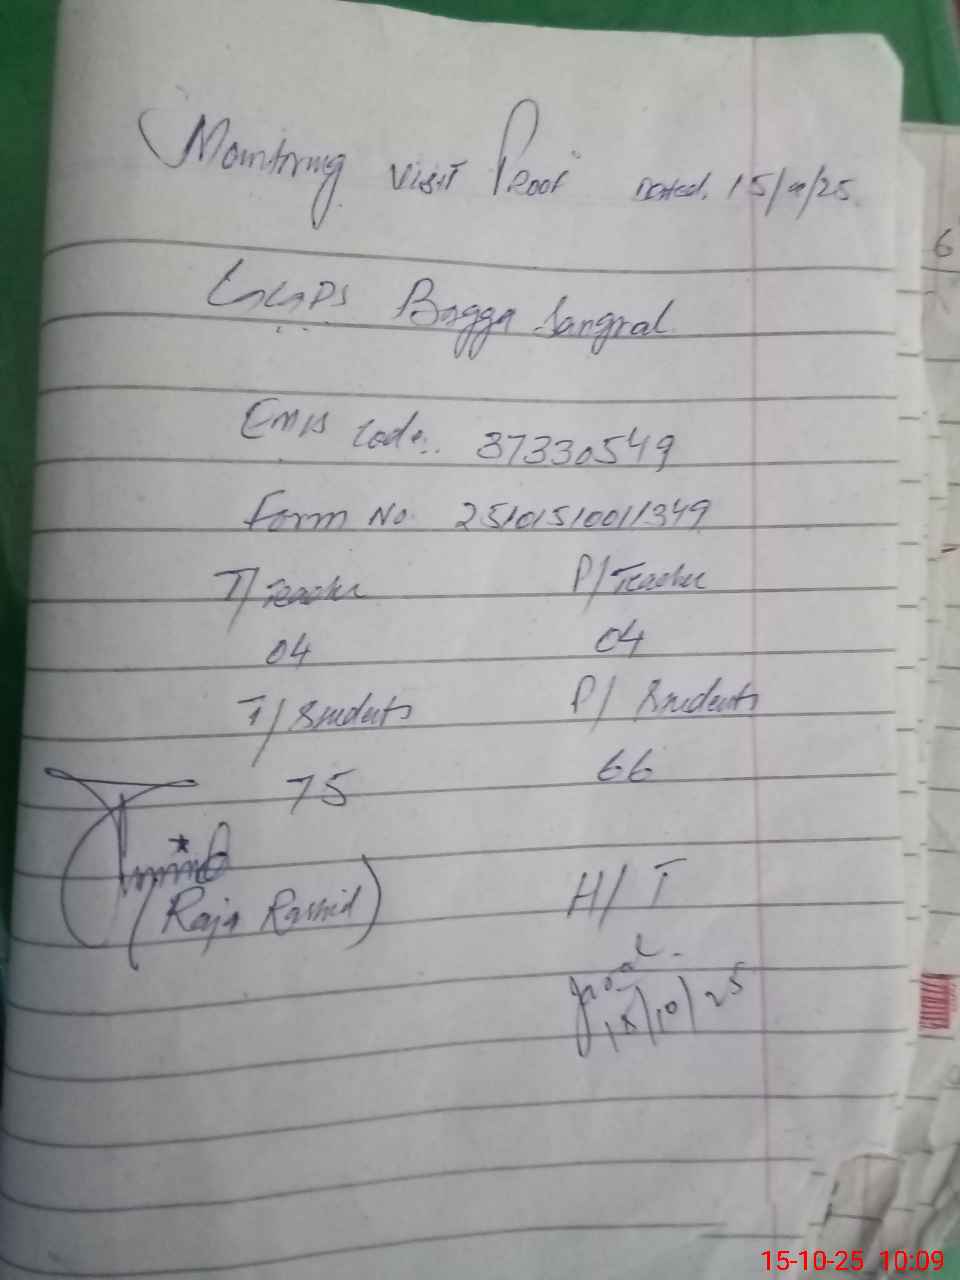 Monitoring visit Proof Dated. 15/10/25
GGPS Bagga Sangral
Emis Code:. 37330549
Form No. 25101510011349
T/Teacher P/Teacher
04 04
T/Students P/Students
75 66
(Raja Rashid)
H/T
15/10/25
6
15-10-25 10:09